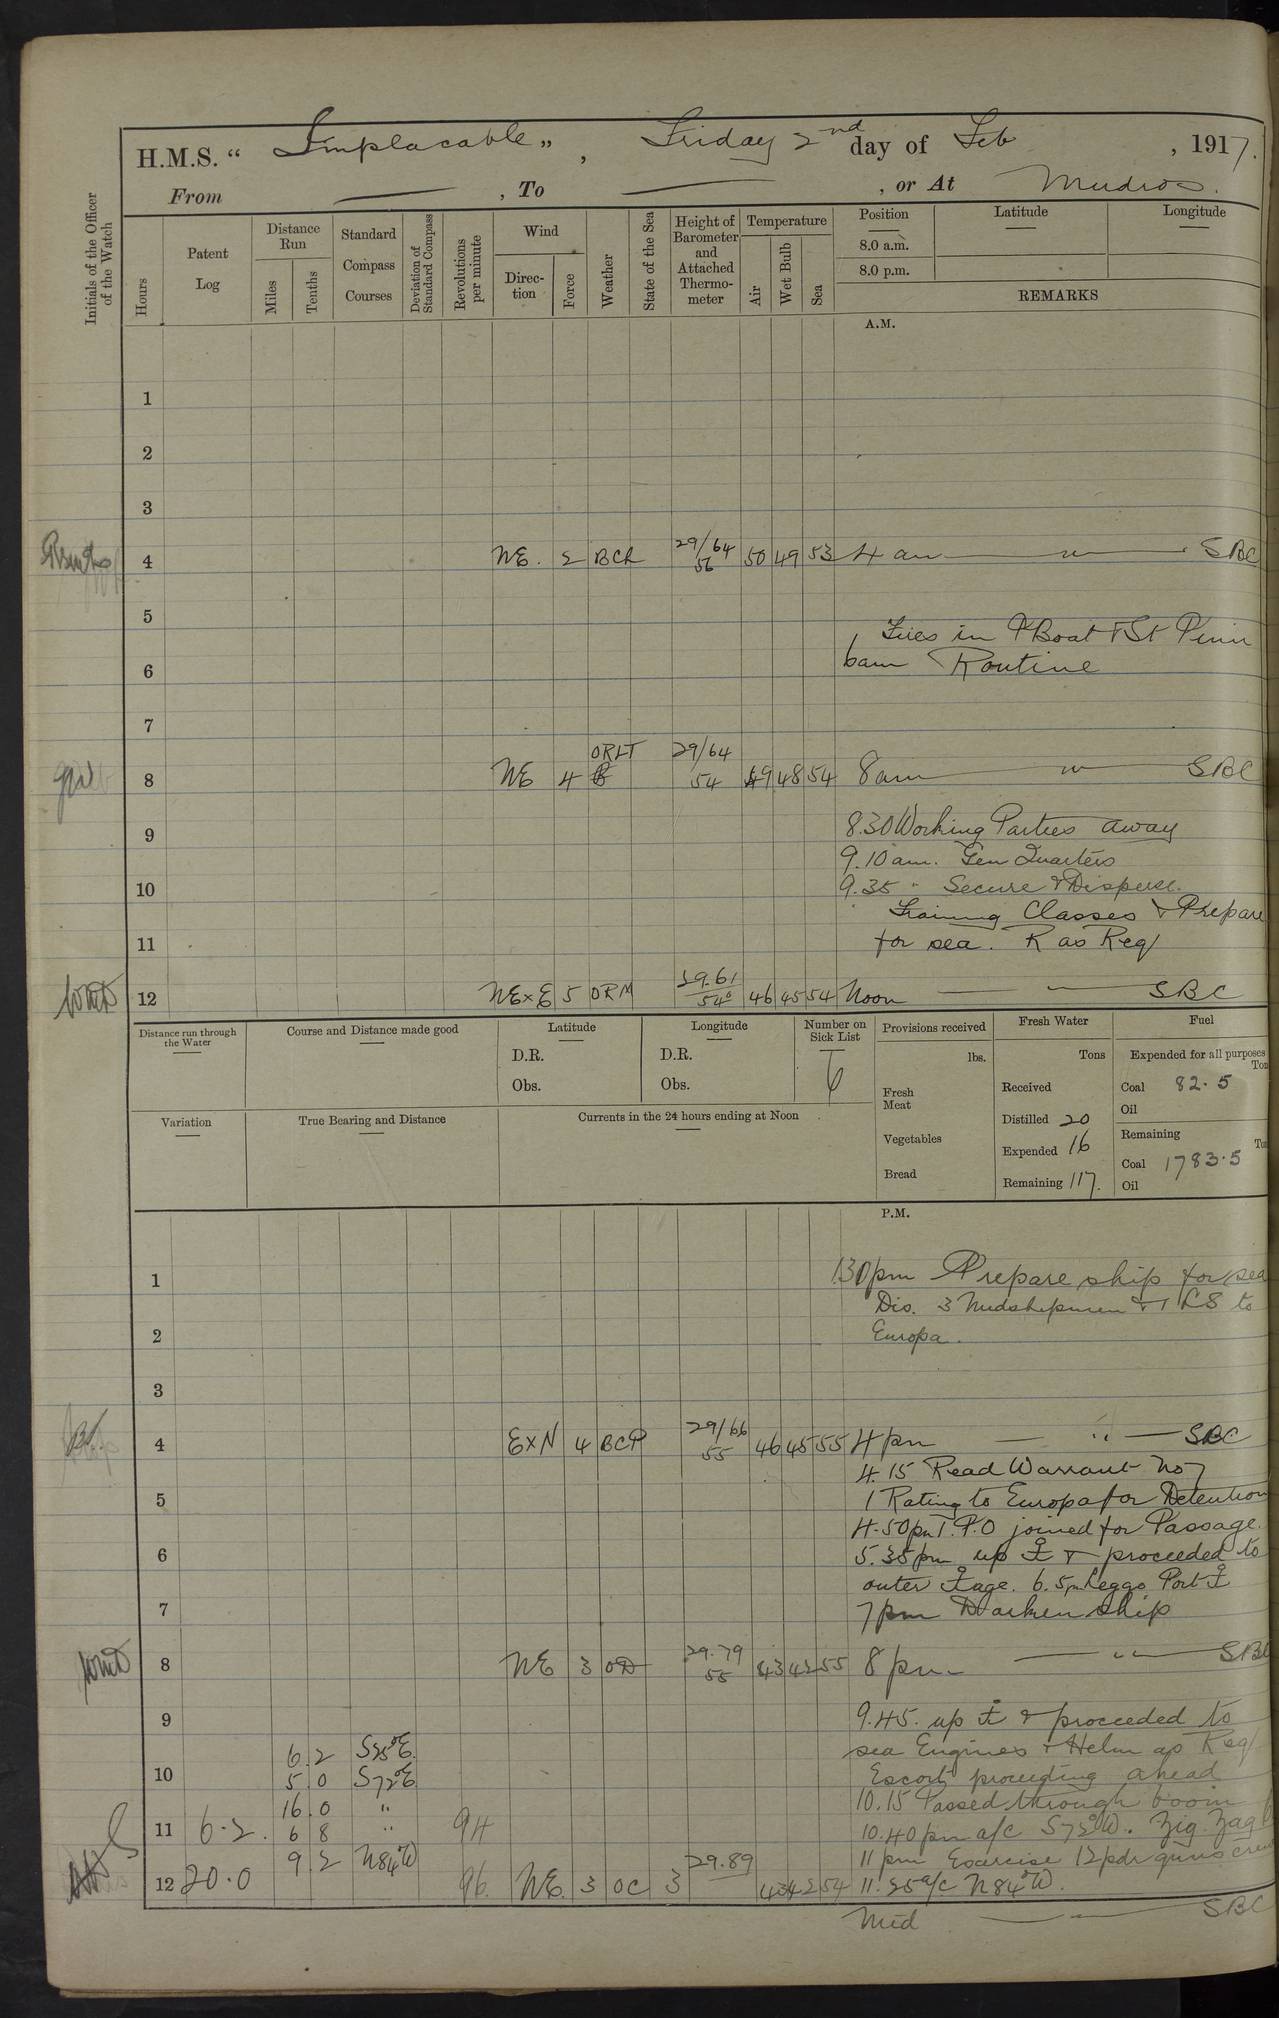 H.M.S. “ Implacable ” , Friday 2nd day of Feb , 1917.
From — , To — , or At Mudros.
Initials of the Officer of the Watch
Hours
Patent Log
Distance Run
Miles
Tenths
Standard Compass Courses
Deviation of Standard Compass
Revolutions per minute
Wind
Direction
Force
Weather
State of the Sea
Height of Barometer and Attached Thermometer
Temperature
Air
Wet Bulb
Sea
Position
8.0 a.m.
8.0 p.m.
Latitude
Longitude
REMARKS
A.M.
1
2
3
4 NE. 2 BCR 29/64 56 50 49 53 4 am — " — SBC
5
Fires in P Boat & St Pinn
6 6am Routine
7
8 NE 4 ORLT 29/64 54 49 48 54 8am — " — SBC
9 8.30 Working Parties away
9.10 am. Gen Quarters
10 9.35 " Secure & Disperse.
Training Classes & Prepare
11 for sea. R as Req/
12 NE×E 5 ORM 29.61 54° 46 45 54 Noon — " — SBC
Distance run through the Water
Course and Distance made good
Latitude
D.R.
Obs.
Longitude
D.R.
Obs.
Number on Sick List
6
Provisions received
lbs.
Fresh Meat
Vegetables
Bread
Fresh Water
Tons
Received
Distilled 20
Expended 16
Remaining 117.
Fuel
Expended for all purposes
Ton
Coal 82.5
Oil
Remaining
Coal 1783.5
Oil
Variation
True Bearing and Distance
Currents in the 24 hours ending at Noon
P.M.
1 1.30pm Prepare ship for sea
Dis. 3 Midshipmen & 1 LS to
2 Europa.
3
4 E×N 4 BCP 29/66 55 46 45 55 4 pm — " — SBC
4.15 Read Warrant No 7
5 1 Rating to Europa for Detention
4.50pm 1. P.O joined for Passage.
6 5.35pm up ⚓ & proceeded to
outer ⚓age. 6.5pm Leggo Port ⚓
7 7pm Darken ship
8 NE 3 OD 29.79 55 43 42 55 8 pm — " — SBC
9 9.45. up ⚓ & proceeded to
6 2 S25°E. sea Engines & Helm as Req/
10 5 0 S72°E Escort proceeding ahead
16 0 " 10.15 Passed through boom
11 6.2. 6 8 " 94 10.40pm a/c S72°W. Zig. Zag
9 2 N84°W 29.89 11 pm Exercise 12pdr guns crews
12 20.0 96. NE. 3 OC 3 43 42 54 11.25 a/c N84°W.
Mid — " — SBC